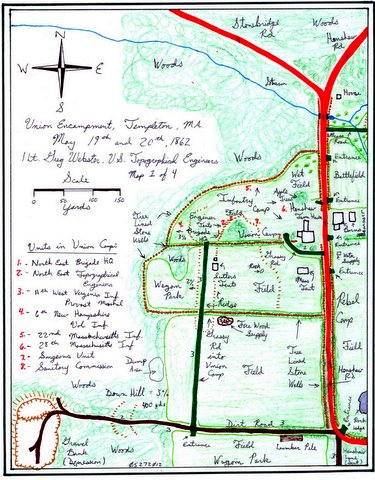 Stonebridge
Rd
Woods
Henshaw
Rd
Woods
N
W
E
S
Stream
House
Union Encampment, Templeton, MA.
May 19th and 20th 1862
1 Lt. Greg Webster, U.S. Topographical Engineers
Map 1 of 4
Scale
0 50 150
Yards
Woods
Entrance
Battlefield
Wet
Field
Infantry
Camp
Apple
Trees
Entrance
Henshaw
Farm House
Engineer
Tents
Field
Brigade
Union Camp
Barns
Tree
Lined
Stone
Walls
Entrance
Water
Supply
Entrance
Units in Union Camp:
1.- North East Brigade HQ
2.- North East Topographical
Engineers
3.- 11th West Virginia Inf
Provost Marshal
4.- 6th New Hampshire
Vol Inf
5.- 22nd Massachusetts Inf.
6.- 28th Massachusetts Inf
7.- Surgeons Unit
8.- Sanitary Commission
Woods
Wagon
Park
Sutlers
Tents
Field
Grassy
Rd
Mess
Tent
Ridge
Rebel
Camp
Fire Wood
Supply
Grassy
Rd
into
Union
Camp
Tree
Lined
Stone
Walls
Field
Field
Henshaw
Rd
Dump
Woods
Down Hill = 3%
400 yds
Dirt Road
3
Entrance
Gravel
Bank
(Depression)
Woods
05272012
Entrance
Field
Lumber Pile
Wagon Park